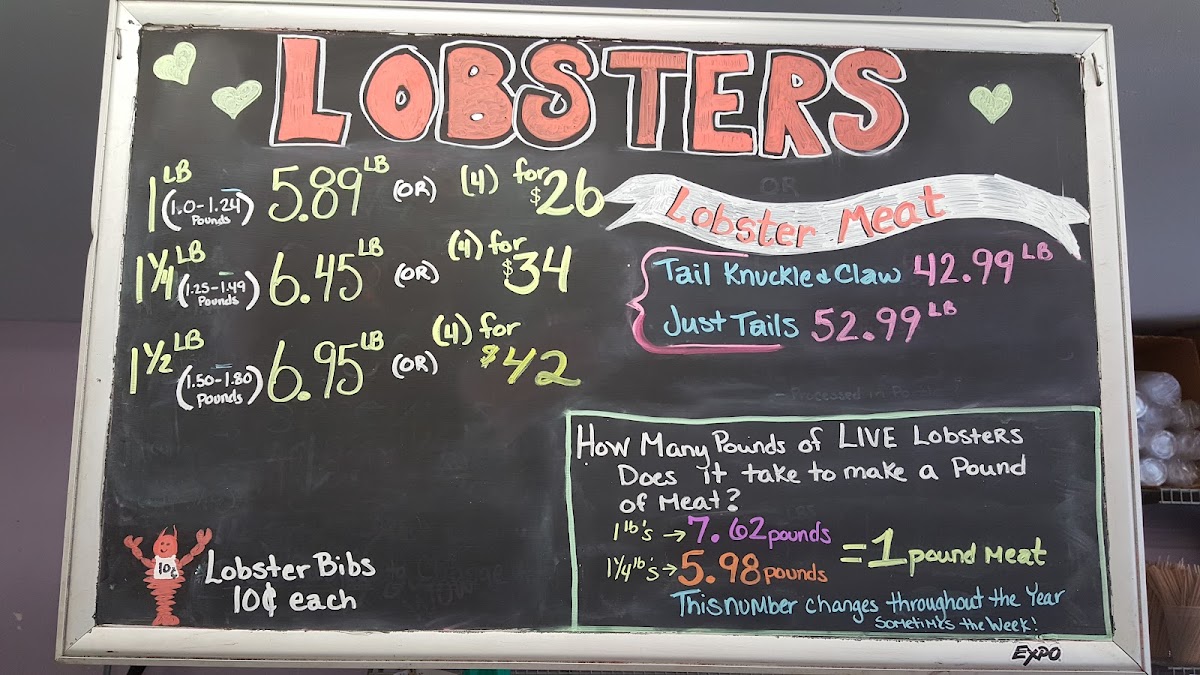 LOBSTERS
1 LB (1.0-1.24 Pounds) 5.89 LB (OR) (4) for $26
1 1/4 LB (1.25-1.49 Pounds) 6.45 LB (OR) (4) for $34
1 1/2 LB (1.50-1.80 Pounds) 6.95 LB (OR) (4) for $42
OR
Lobster Meat
Tail Knuckle & Claw 42.99 LB
Just Tails 52.99 LB
How Many Pounds of LIVE Lobsters
Does it take to make a Pound
of Meat?
1 lb's → 7.62 pounds
1 1/4 lb's → 5.98 pounds
= 1 pound Meat
This number changes throughout the Year
Sometimes the Week!
10¢
Lobster Bibs
10¢ each
EXPO